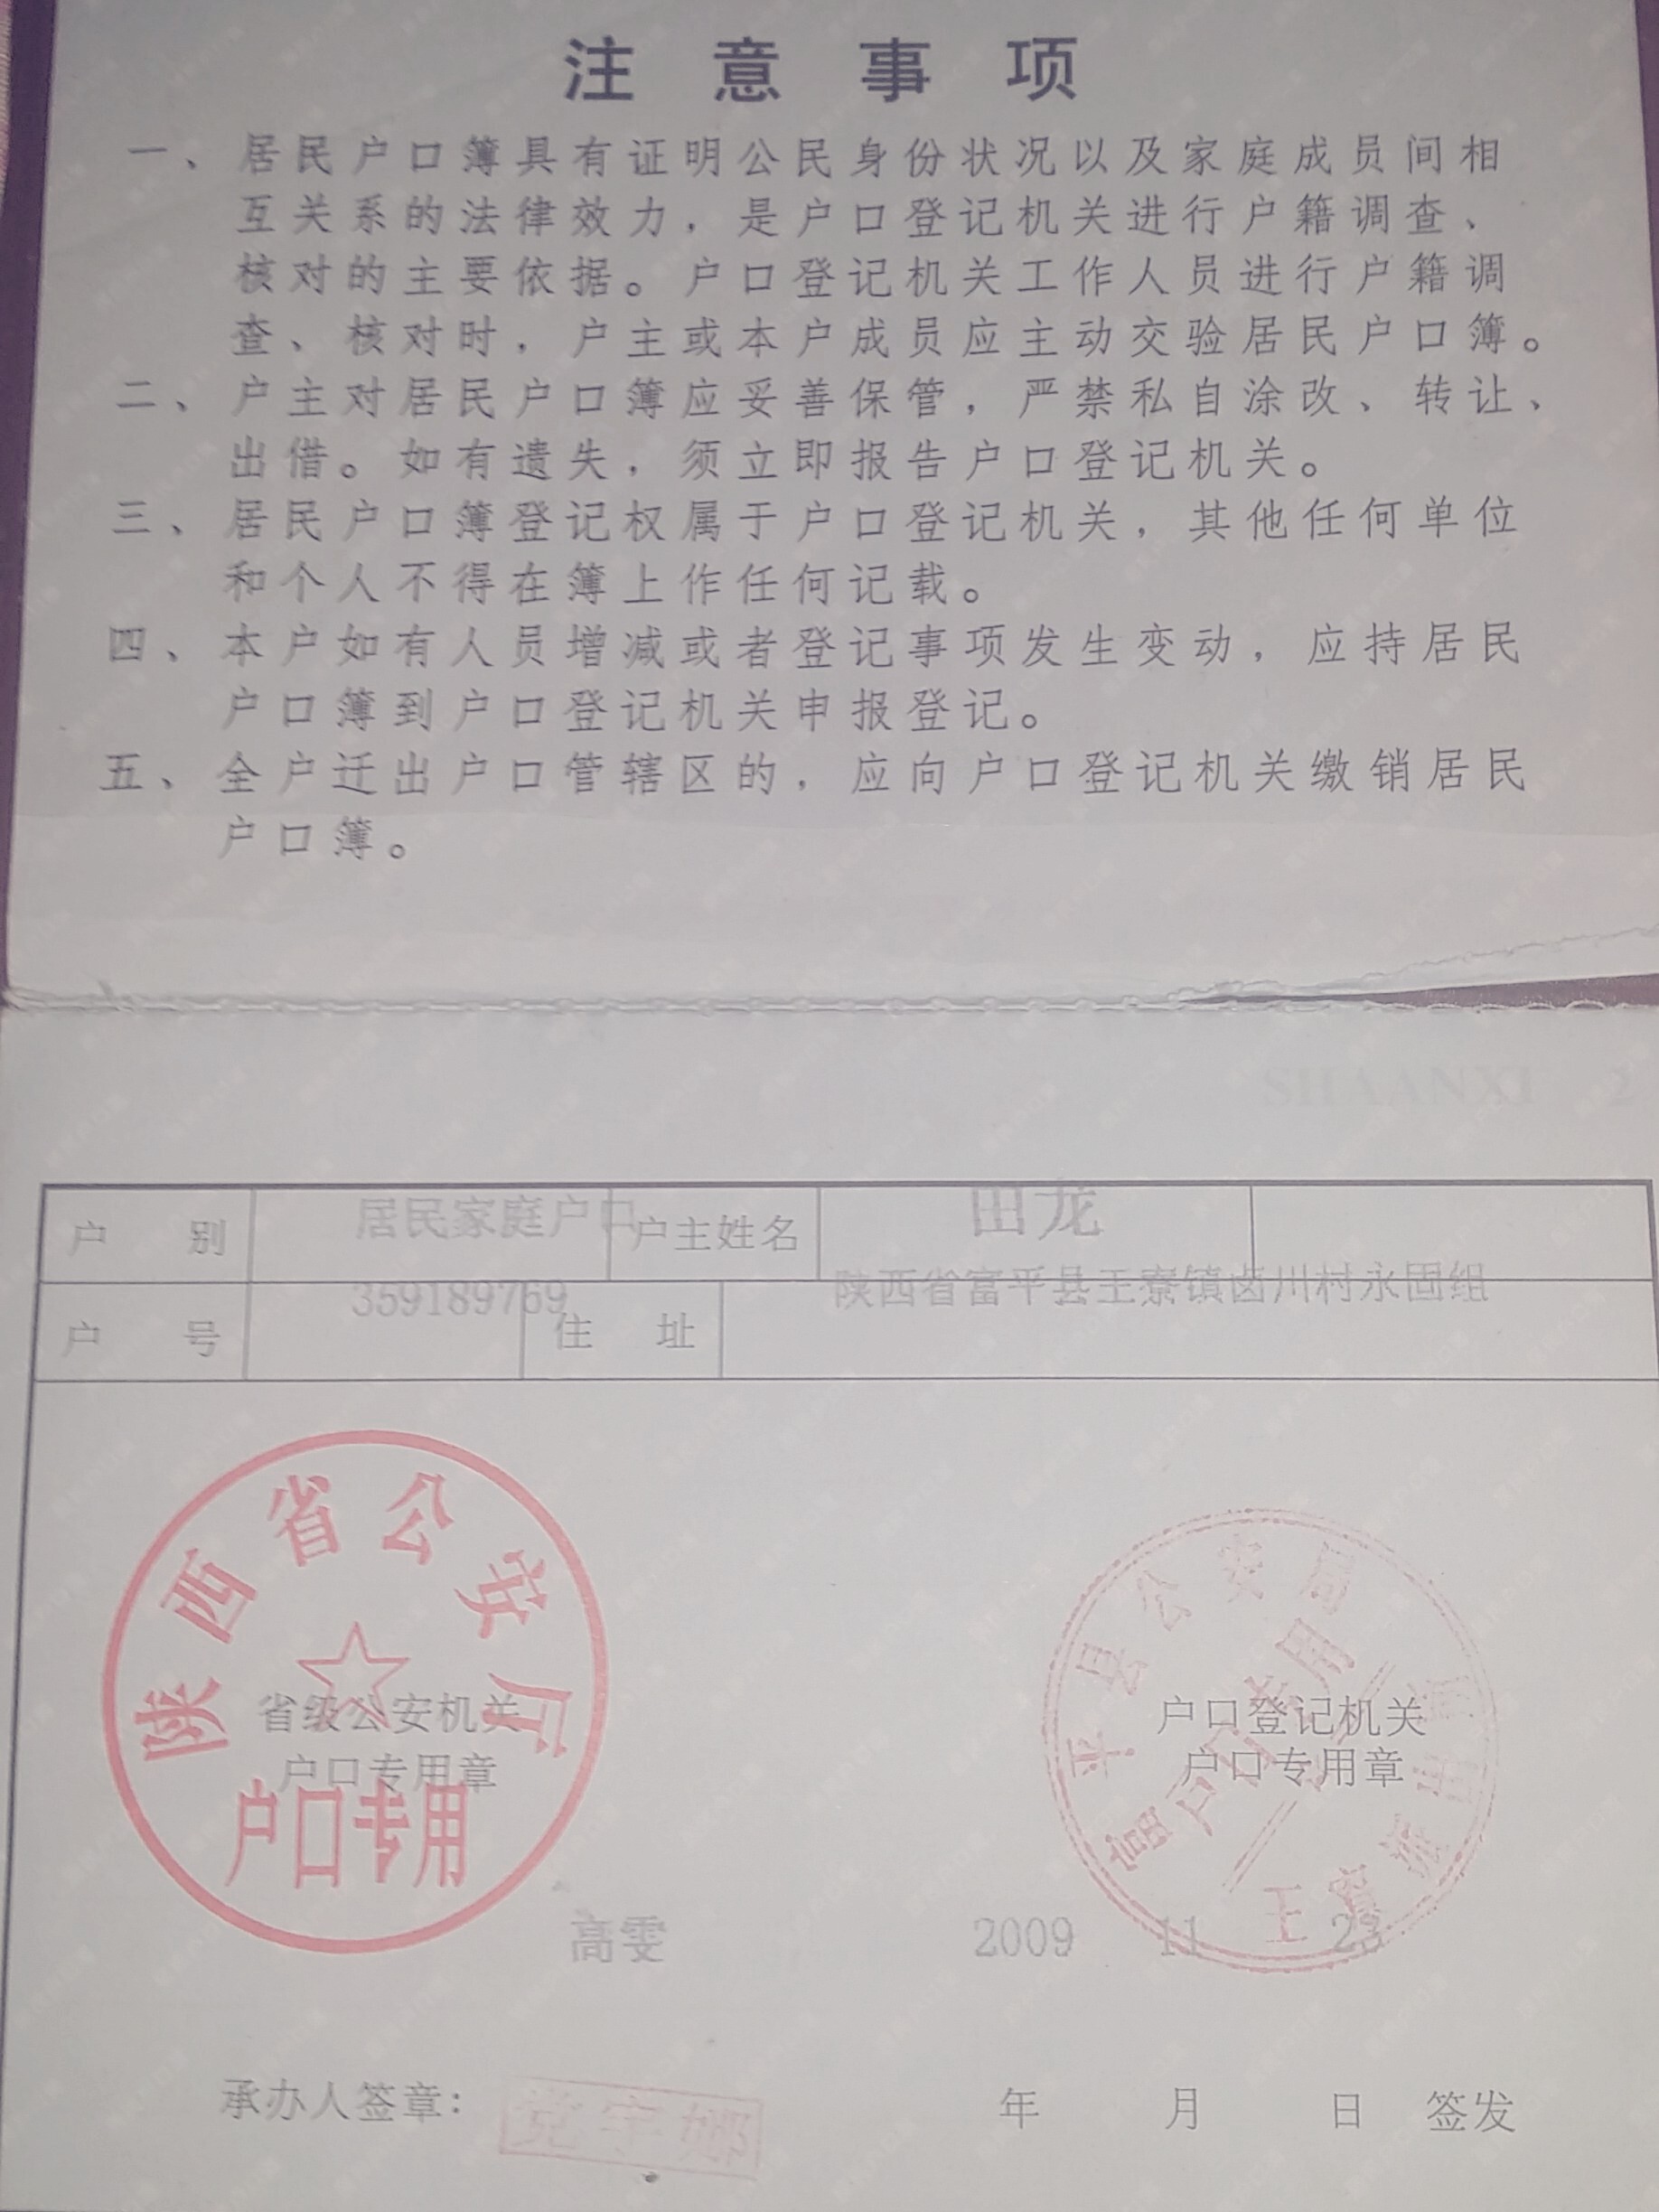 注意事项
一、居民户口簿具有证明公民身份状况以及家庭成员间相
互关系的法律效力，是户口登记机关进行户籍调查、
核对的主要依据。户口登记机关工作人员进行户籍调
查、核对时，户主或本户成员应主动交验居民户口簿。
二、户主对居民户口簿应妥善保管，严禁私自涂改、转让、
出借。如有遗失，须立即报告户口登记机关。
三、居民户口簿登记权属于户口登记机关，其他任何单位
和个人不得在簿上作任何记载。
四、本户如有人员增减或者登记事项发生变动，应持居民
户口簿到户口登记机关申报登记。
五、全户迁出户口管辖区的，应向户口登记机关缴销居民
户口簿。
SHAANXI 2
户别 居民家庭户口 户主姓名 田龙
户号 359189769 住址 陕西省富平县王寮镇卤川村永固组
陕西省公安厅
户口专用
省级公安机关
户口专用章
富平县公安局王寮派出所
户口专用
户口登记机关
户口专用章
高雯 2009 11 23
承办人签章： 年 月 日 签发